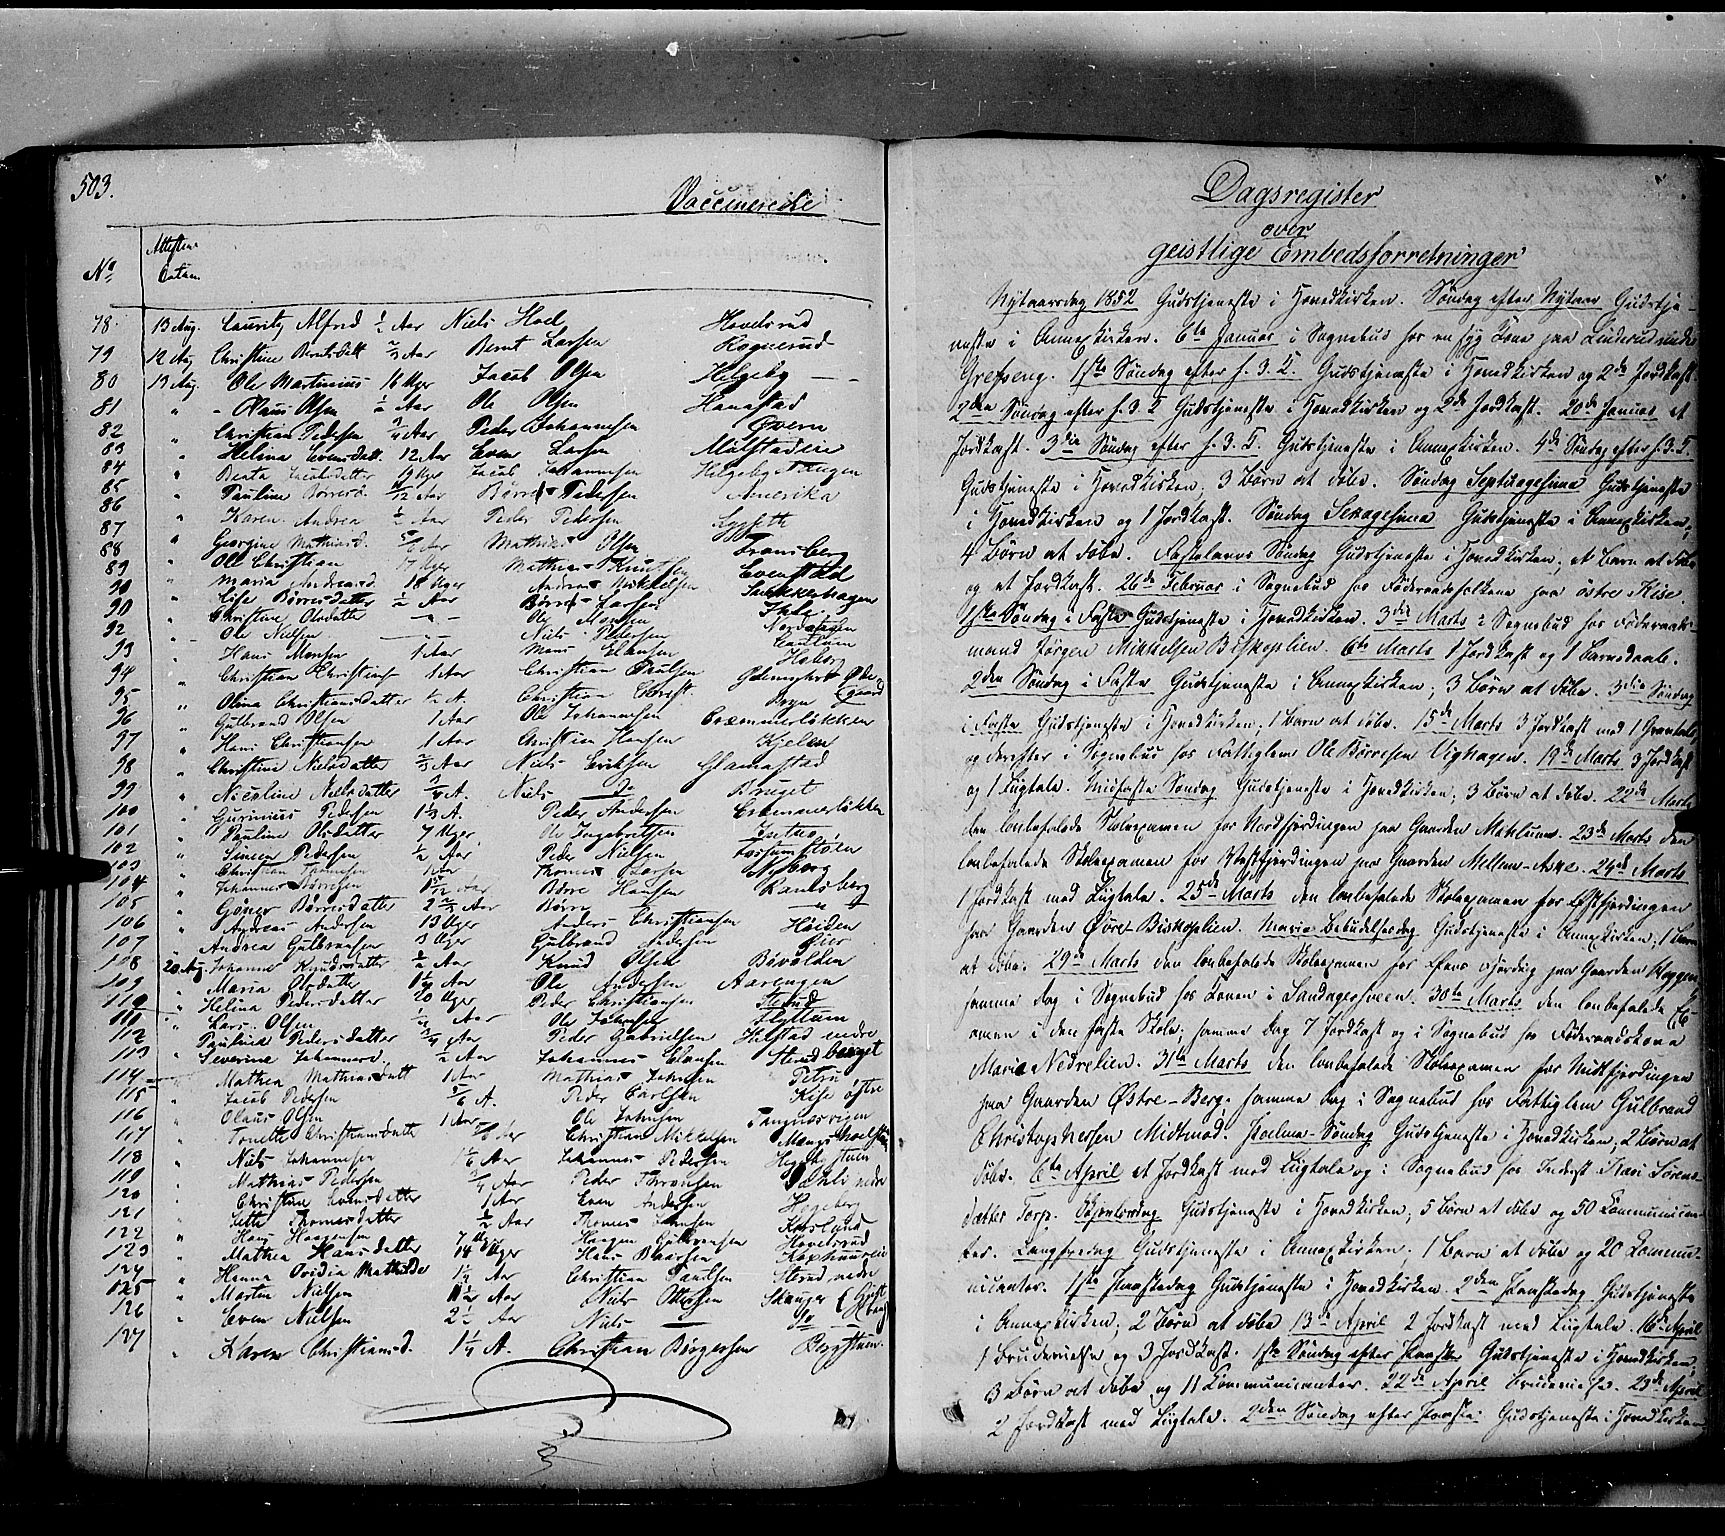 503.
Vaccinerede
Attestens
Datum
No
78. 13 Aug. Lauritz Alfred ½ Aar Niels Hoel Hovelsrud
79 12 Aug Christine Berntsdtt ⅔ Aar Bernt Larsen Rognerud
80 13 Aug. Ole Martinius 16 Uger Jacob Olsen Helgeby
81 " Olaus Olsen ½ Aar Ole Olsen Hanestad
82 " Christian Pedersen ¾ Aar Peder Johannesen Qvern
83 " Helena Evensdatt. 12 Aar Even Larsen
84 " Beata Jacobsdatt 19 Uger Jacob Johannesen Helgeby
85 " Pauline Børresd. Aar Børre Pedersen Amerika
86 " Karen Andrea ½ Aar Peder Pedersen
87 " Georgine Mathiasd. Aar Mathias Olsen Fransberg
88 " Ole Christian 17 Uger Mathias Knutsen Evenstad
89 " Maria Andreasd. 18 Uger Andreas Mikkelsen
90 " Lise Børresdatter ½ Aar Børre Larsen
90 " Christine Olsdatter Ole Monsen
92 " Ole Nielsen Niels Pedersen
93 " Hans Monsen 1 Aar Mons
94 " Christian Christians 1 Aar Christian Paulsen
95 " Olina Christiansdatter ½ A. Christian Christ.
96 " Gulbrand Olsen 1 Aar Ole Johannesen Cræmmerløkken
97 " Hans Christiansen 1 Aar Christian Hansen Kjelen
98 " Christine Nielsdatter ⅔ Aar Niels Eriksen Glæmestad
99 " Nicoline Nielsdatter ¾ A. Niels Do Bruget
100 " Gurinius Pedersen 1⅓ A. Peder Andersen Cræmmerløkken
101 " Pauline Olsdatter 7 Uger Ole Ingebretsen
102 " Simen Pedersen ½ Aar Peder Nielsen
103 " Christian Thomesen 1 Aar Thomas Larsen Nyborg
104 " Johannes Børresen Aar Børre Hansen Ramsberg
105 " Børresdatter 2 Aar Børre
106 " Andreas Andersen 13 Uger Anders Christiansen Høiden
107 " Andrea Gulbransen 9 Uger Gulbrand Andersen
108 20 Aug. Johanne Knudsdatter ½ Aar Knud Olsen Bøvolden
109 " Maria Olsdatter 1¼ Aar Ole Andersen Aarengen
110 " Helina Pedersdatter 20 Uger Peder Christiansen Sterud
111 " Lars Olsen Aar Ole Johnsen Flyttum
112 " Pauline Pedersdatter ¾ Aar Peder Gabrielsen Helstad nedre
113 " Severine Johannesd. ½ Aar Johannes Sterudberget
114 " Mathea Mathiasdatt 1 Aar Mathias Johnsen
115 " Jacob Pedersen A. Peder Carlsen Kise østre
116 " Olaus Olsen 1 Aar Ole Johnsen Tangnesvigen
117 " Tonette Christiansdatter Aar Christian Mikkelsen
118 " Niels Johannesen Aar Johannes Pedersen
119 " Mathias Pedersen Aar Peder Dahli nedre
120 " Christine Evensdatter 1 Aar Even Andersen Hogeberg
121 " Jette Thomesdatter ½ Aar Thomes Hansen Korslund
122 " Hans Haagensen 7 Uger Haagen Gulbransen Hovelsrud
123 " Mathea Hansdatter 14 Uger Hans
124 " Hanna Ovidia Mathilde Aar Christian Paulsen Sterud nedre
125 " Martin Nielsen Aar Niels Ottersen Skanger
126 " Even Nielsen 2½ Aar Niels Do
127 " Karen Christiansd. 1¼ A. Christian Børgersen Bergstuen.
Dagsregister
over
geistlige Embedsforretninger
Nytaarsdag 1852 Gudstjeneste i Hovedkirken. Søndag efter Nytaar Gudstje-
neste i Annexkirken. 6te Januar i Sognebud hos en syg Kone paa Linderud nedre
Grefseng. 1ste Søndag efter H. 3. K. Gudstjeneste i Hovedkirken og 2de Jordkast.
2den Søndag efter H. 3 K Gudstjeneste i Hovedkirken og 2de Jordkast. 20de Januar et
Jordkast. 3die Søndag efter H. 3. K. Gudstjeneste i Annexkirken. 4de Søndag efter H. 3. K.
Gudstjeneste i Hovedkirken; 3 Børn at døbe. Søndag Septuagesima Gudstjeneste
i Hovedkirken og 1 Jordkast. Søndag Sexagesima Gudstjeneste i Annexkirken;
4 Børn at døbe. Fastelavns Søndag Gudstjeneste i Hovedkirken; et Barn at døbe
og et Jordkast. 26de Februar i Sognebud hos Føderaadsfolkene paa østre Kise.
1ste Søndag i Faste Gudstjeneste i Hovedkirken. 3die Marts i Sognebud hos Føderaads-
mand Jørgen Mikkelsen Biskoplien. 6te Marts 1 Jordkast og 1 Barnedaab.
2den Søndag i Faste Gudstjeneste i Annexkirken; 3 Børn at døbe. 3die Søndag
i Faste Gudstjeneste i Hovedkirken; 1 Barn at døbe. 15de Marts 3 Jordkast med 1 Gravtale,
og derefter i Sognebud hos Fattiglem Ole Børresen Vighagen. 19de Marts 3 Jordkast
og 1 Liigtale. Midfaste Søndag Gudstjeneste i Hovedkirken; 3 Børn at døbe. 22de Marts
den lovbefalede Skoleexamen for Nordfjerdingen paa Gaarden Mæhlum. 23de Marts den
lovbefalede Skoleexamen for Vestfjerdingen paa Gaarden Mellem-Aske. 24de Marts
1 Jordkast med Liigtale. 25de Marts den lovbefalede Skoleexamen for Østfjerdingen
paa Gaarden Øvre Biskoplien. Mariæ Bebudelsesdag Gudstjeneste i Annexkirken; 1 Barn
at døbe. 29de Marts den lovbefalede Skoleexamen for Fjerding paa Gaarden
samme Dag i Sognebud hos Konen i Sandagersveen. 30te Marts den lovbefalede Ex-
amen i den faste Skole; samme Dag 7 Jordkast og i Sognebud hos Føderaadskone
Maria Nedrelien. 31te Marts den lovbefalede Skoleexamen for Midtfjerdingen
paa Gaarden Østre-Berg, samme Dag i Sognebud hos Fattiglem Gulbrand
Christophersen Midtnød. Palme-Søndag Gudstjeneste i Hovedkirken; 2 Børn at
døbe. 6te April et Jordkast med Liigtale og i Sognebud hos Inderst Kari Sørens-
datter Torp. Skjærtorsdag Gudstjeneste i Hovedkirken; 5 Børn at døbe og 50 Communican-
ter. Langfredag Gudstjeneste i Annexkirken; 1 Barn at døbe og 20 Commu-
nicanter. 1ste Paaskedag Gudstjeneste i Hovedkirken. 2den Paaskedag Gudstjeneste
i Annexkirken; 2 Børn at døbe 13de April 2 Jordkast med Liigtale. 16de April
1 Brudevielse og 3 Jordkast. 1ste Søndag efter Paaske Gudstjeneste i Hovedkirken;
3 Børn at døbe og 11 Communicanter. 22de April Brudevielse. 23de April
2 Jordkast med Liigtale. 2den Søndag efter Paaske. Gudstjeneste i Hovedkirken